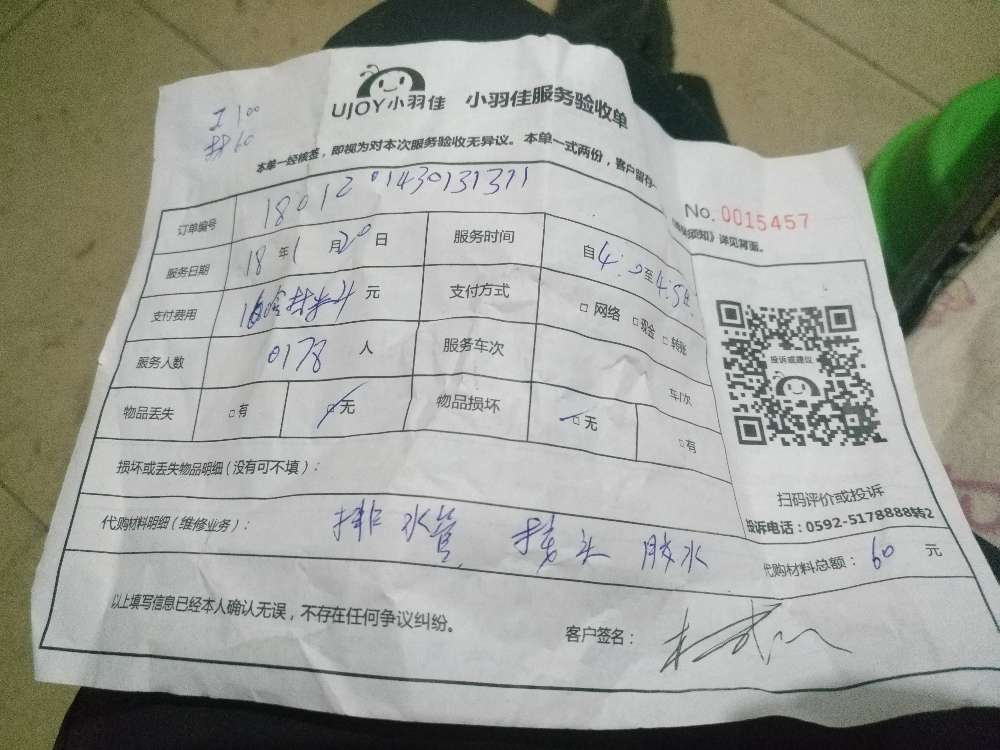 UJOY小羽佳 小羽佳服务验收单
工100
材60
本单一经核签，即视为对本次服务验收无异议。本单一式两份，客户留存
No. 0015457
须知》详见背面。
订单编号 180120143013 1311
服务日期 18年1月20日 服务时间 自4:0至4:54
支付费用 元 支付方式 □网络 □现金 □转账
服务人数 0178 人 服务车次 车/次
物品丢失 □有 □无 物品损坏 □无 □有
投诉或建议
损坏或丢失物品明细（没有可不填）：
扫码评价或投诉
投诉电话：0592-5178888转2
代购材料明细（维修业务）： 排水管 接头 胶水
代购材料总额： 60 元
以上填写信息已经本人确认无误，不存在任何争议纠纷。
客户签名：